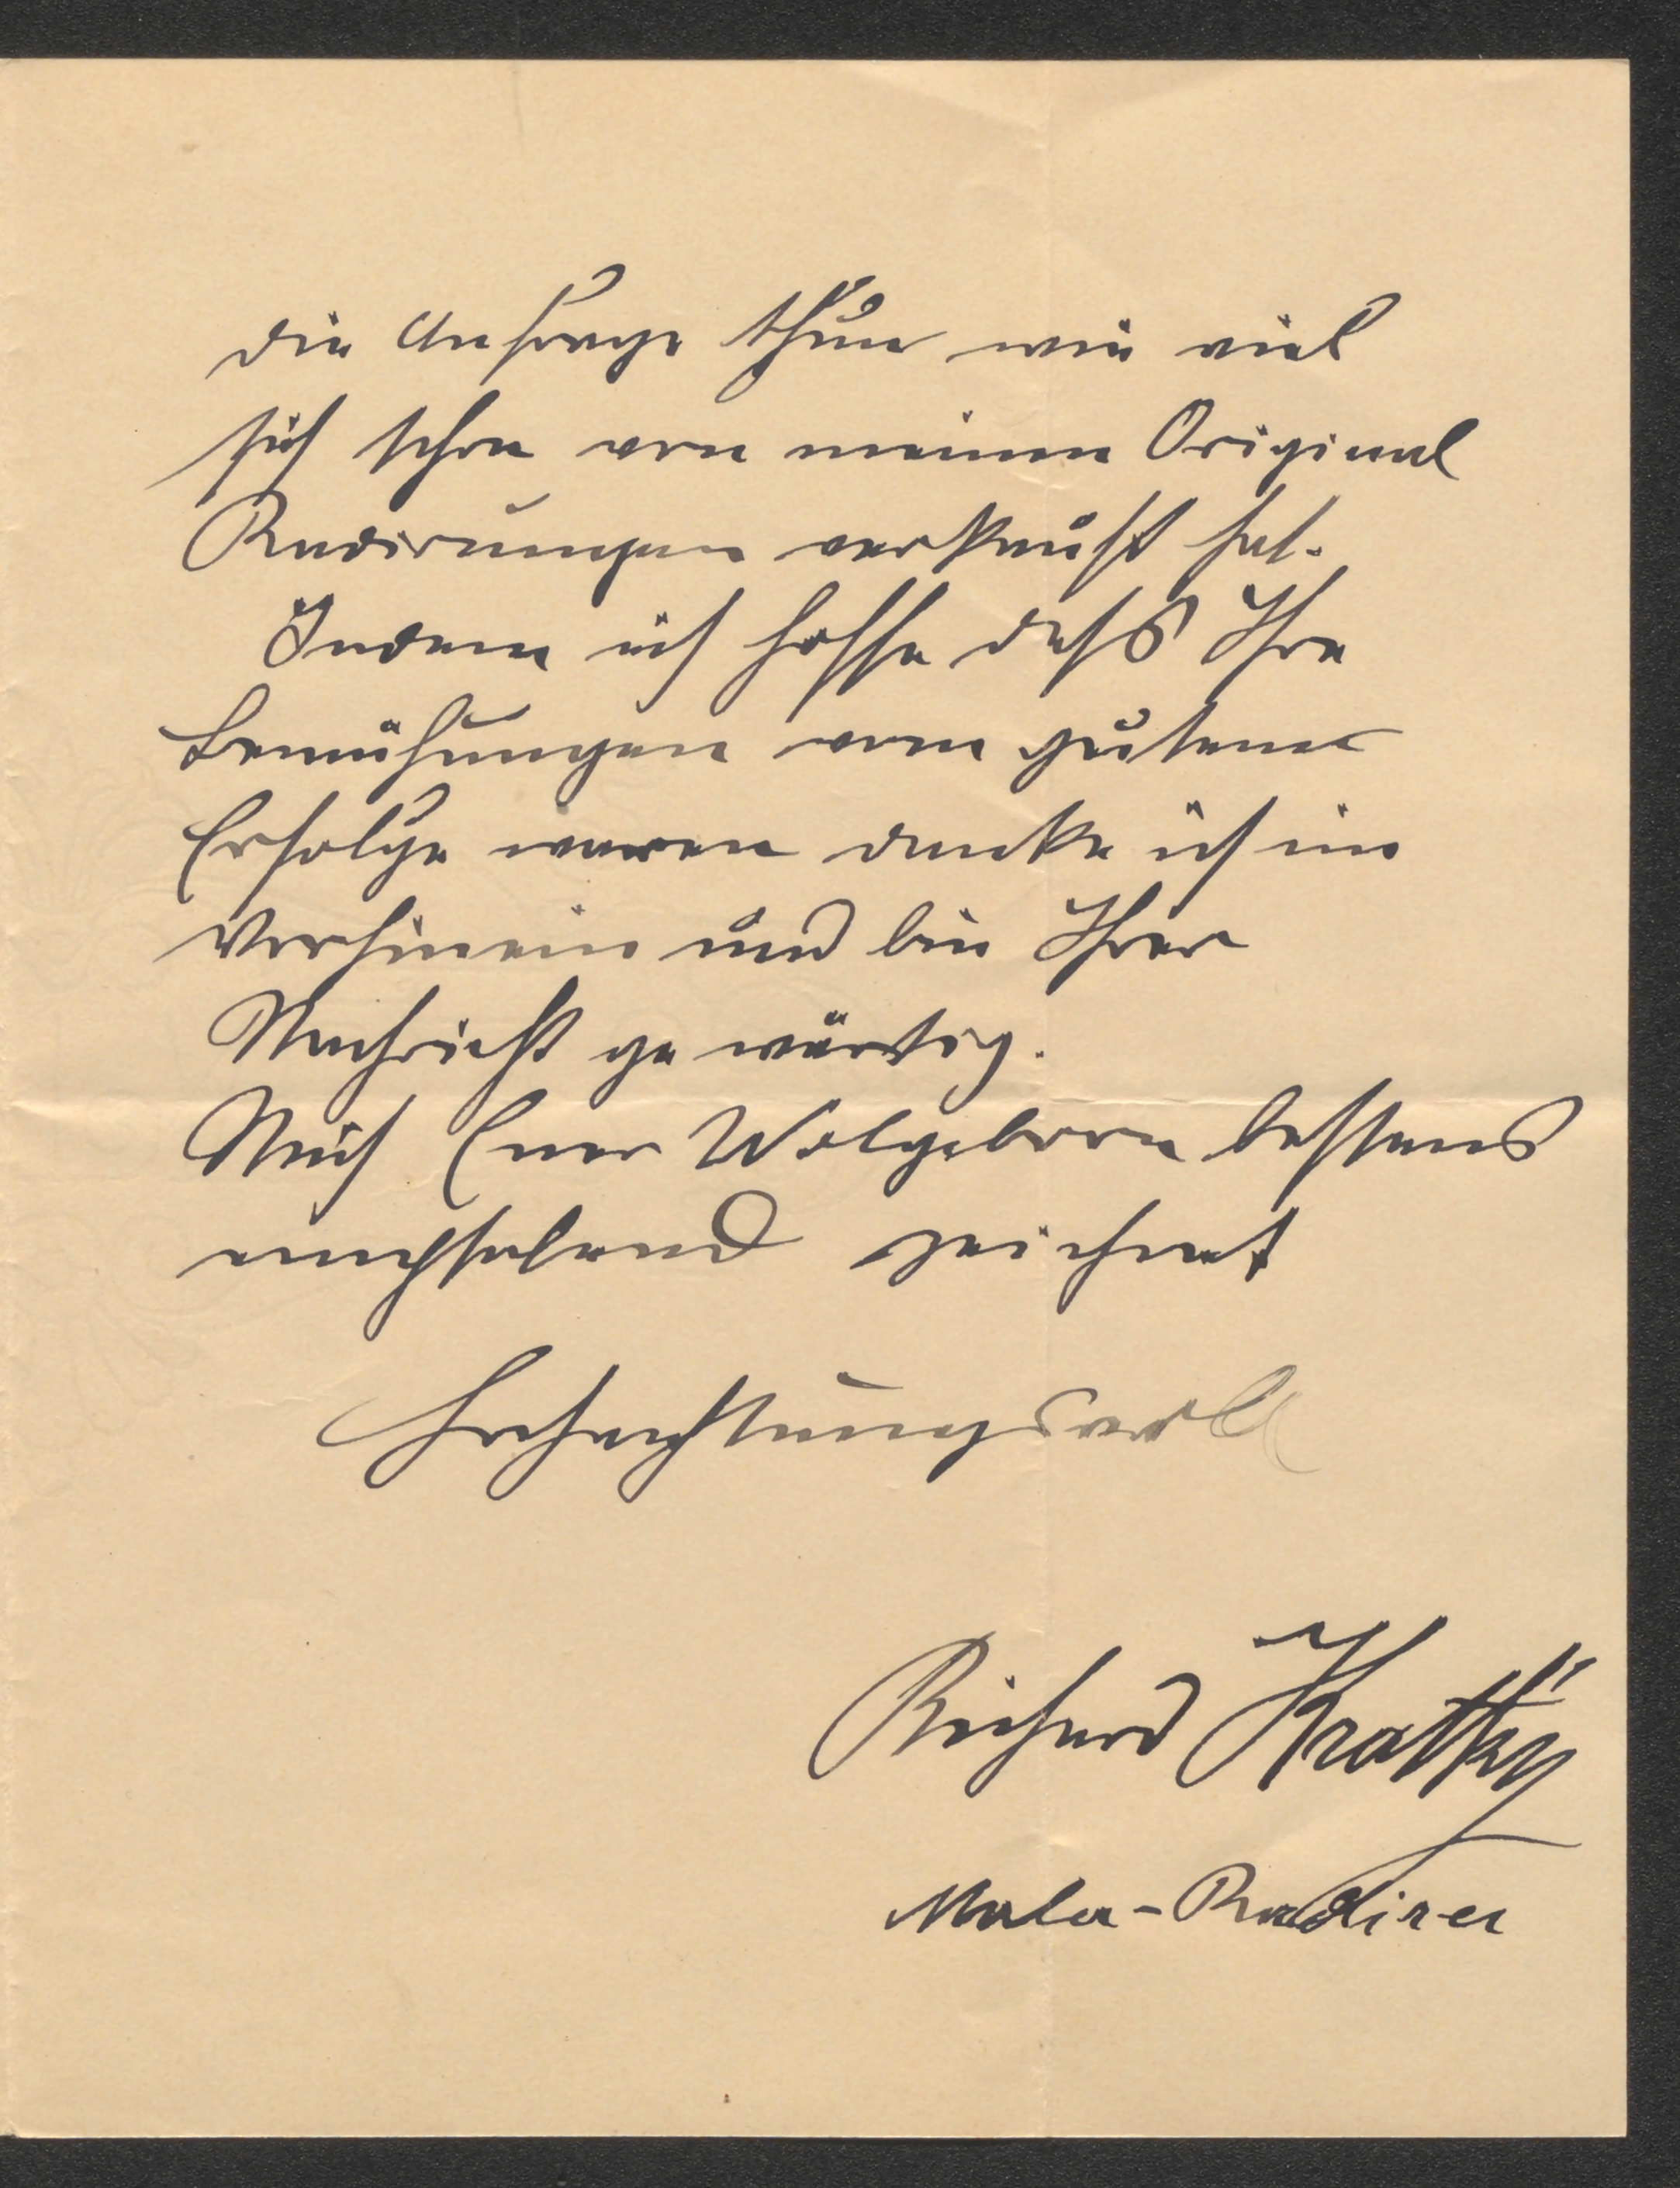 die Anfrage thun wie viel
sich schon von meinen Original
Radirungen verkauft hat.
Indem ich hoffe dass Ihre
Bemühungen vom gutem
Erfolge waren danke ich im
Vorhinein und bin Ihrer
Nachricht gewärtig.
Mich Euer Wolgeborn bestens
empfelend zeichnet
Hochachtungsvoll
Richard Kratky
Maler-Radirer